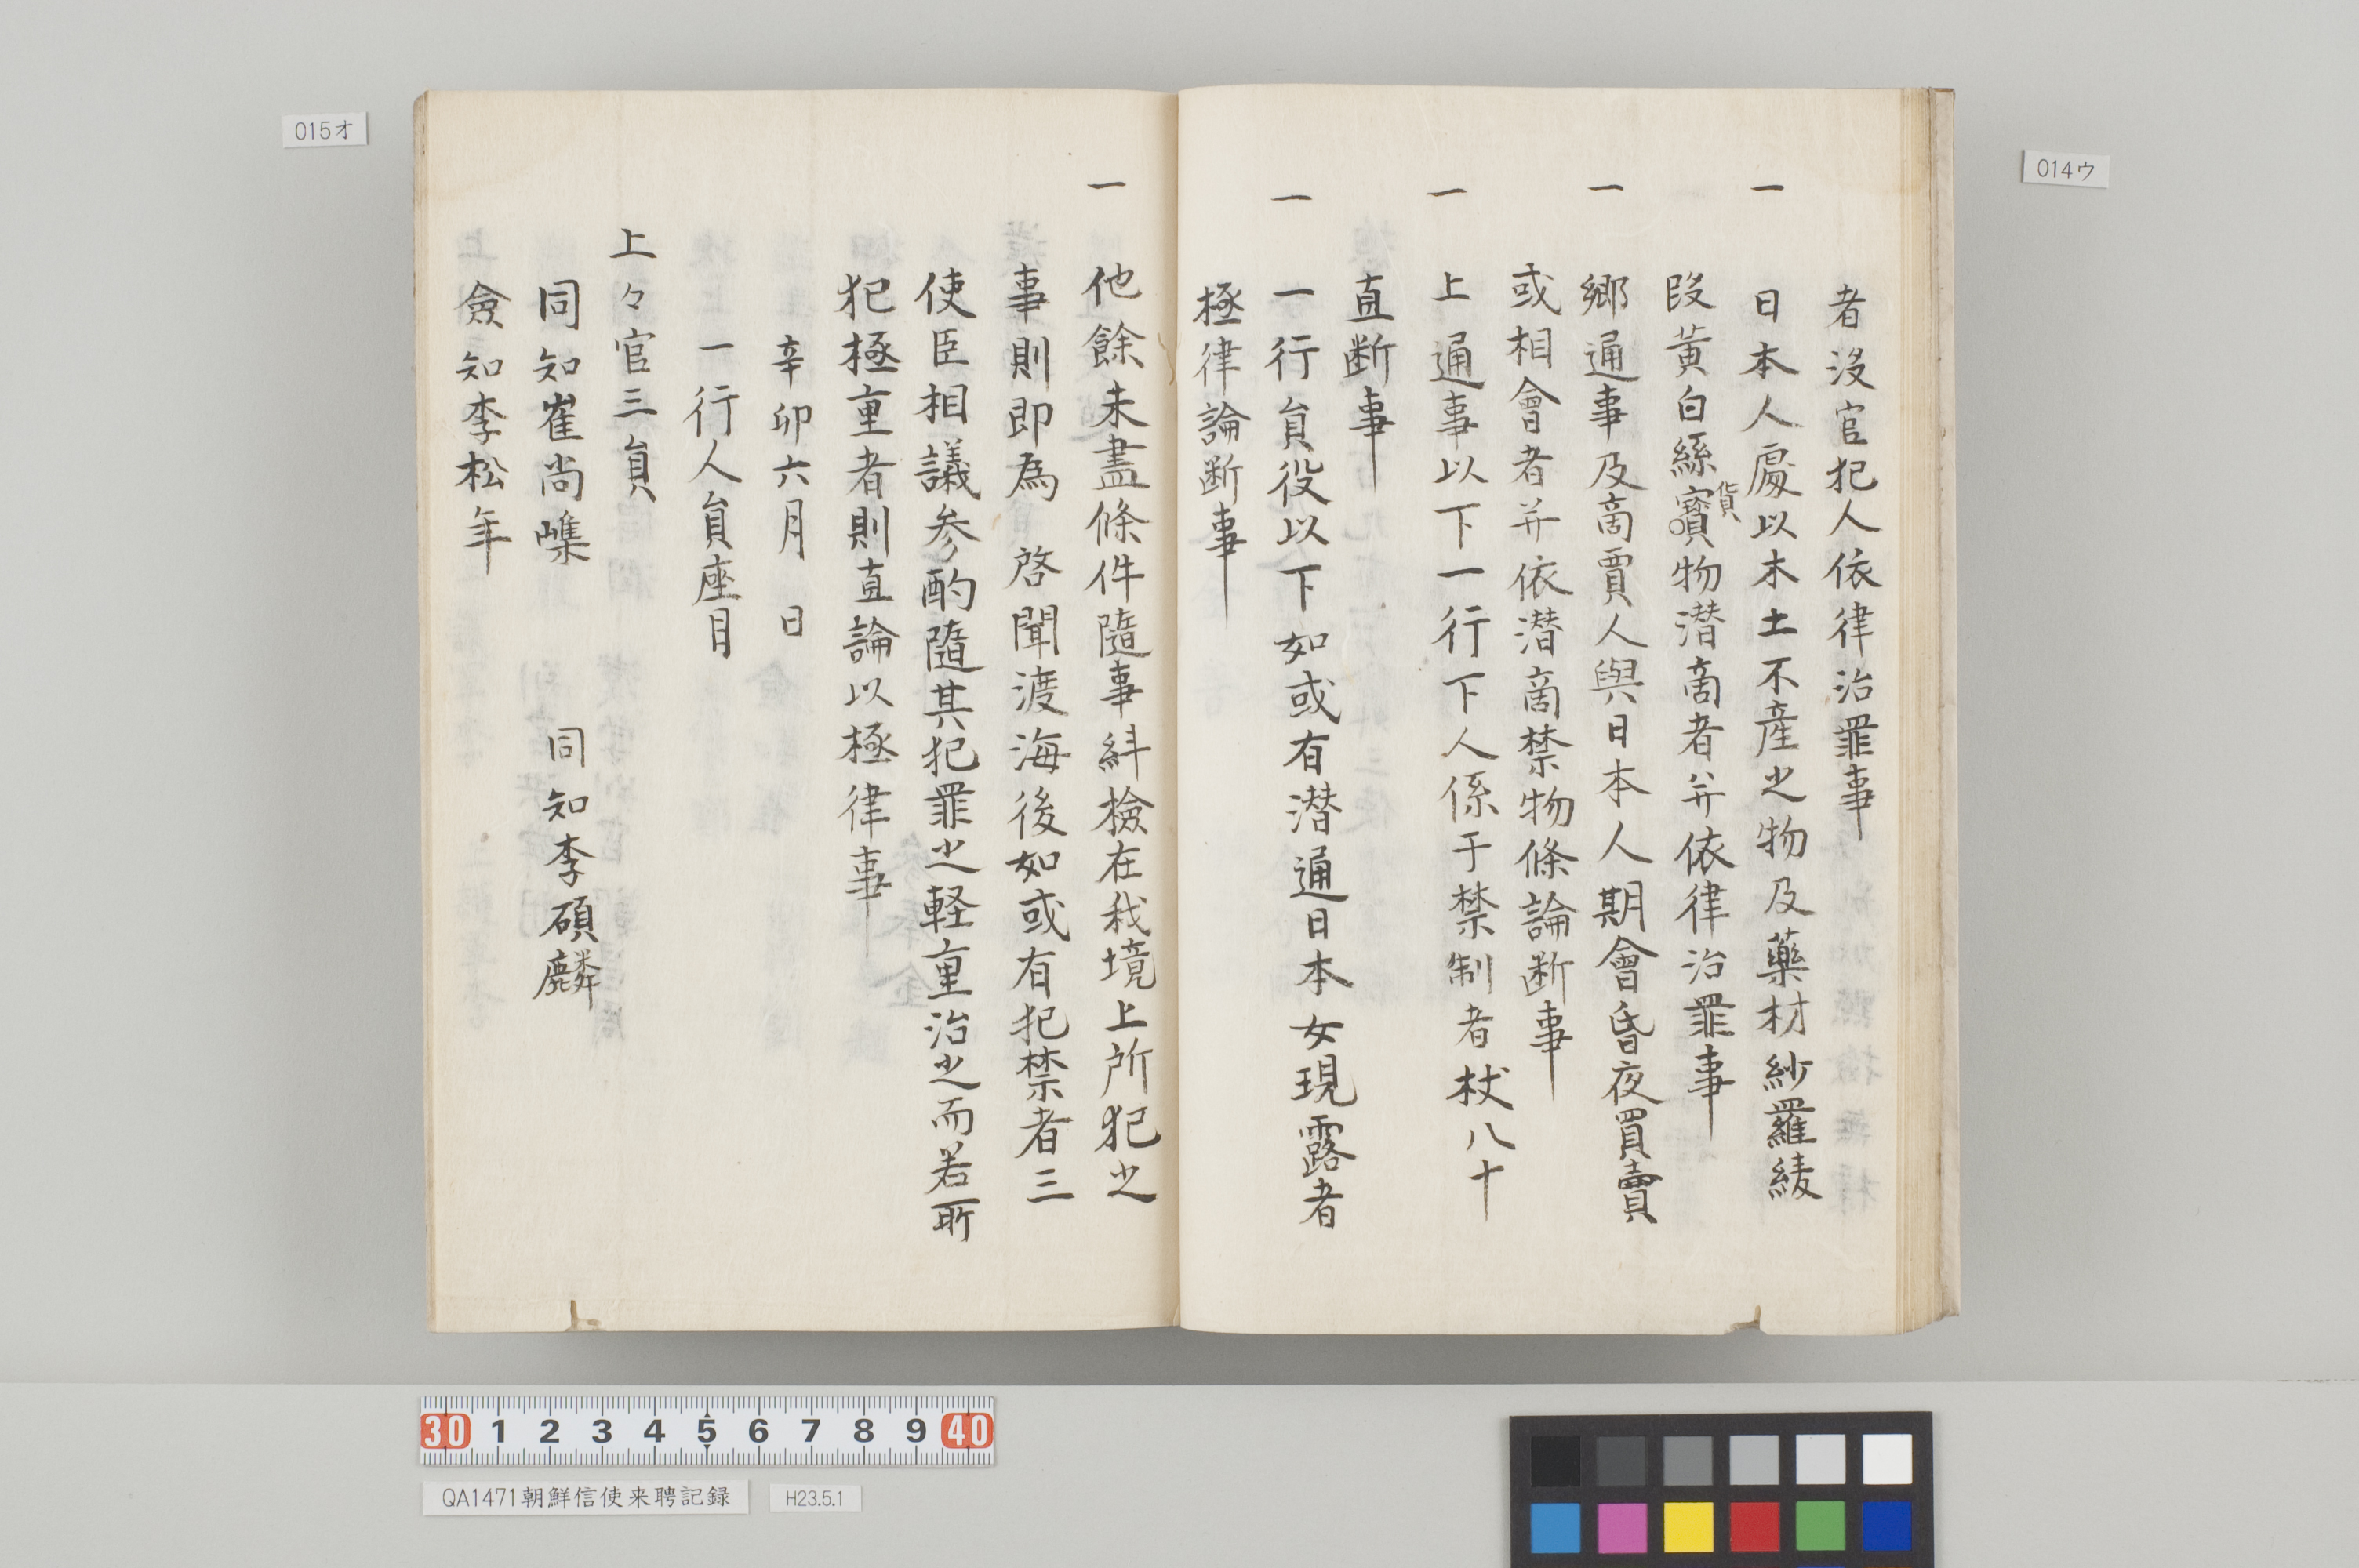 014ウ
者没官犯人依律治罪事
一 日本人處以木土不産之物及藥材紗羅綾
段黄白絲寶貨物潜商者并依律治罪事
一 郷通事及商賈人與日本人期會昏夜買賣
或相會者并依潜商禁物條論断事
一 上通事以下一行下人係于禁制者杖八十
直断事
一 一行員役以下如或有潜通日本女現露者
極律論断事
015オ
一 他餘未盡條件隨事糾檢在我境上所犯之
事則即為 啓聞渡海後如或有犯禁者三
使臣相議参酌隨其犯罪之軽重治之而若所
犯極重者則直論以極律事
辛卯六月 日
一行人員座目
上々官三員
同知崔尚㠎 同知李碩麟
僉知李松年
30 1 2 3 4 5 6 7 8 9 40
QA1471朝鮮信使来聘記録 H23.5.1